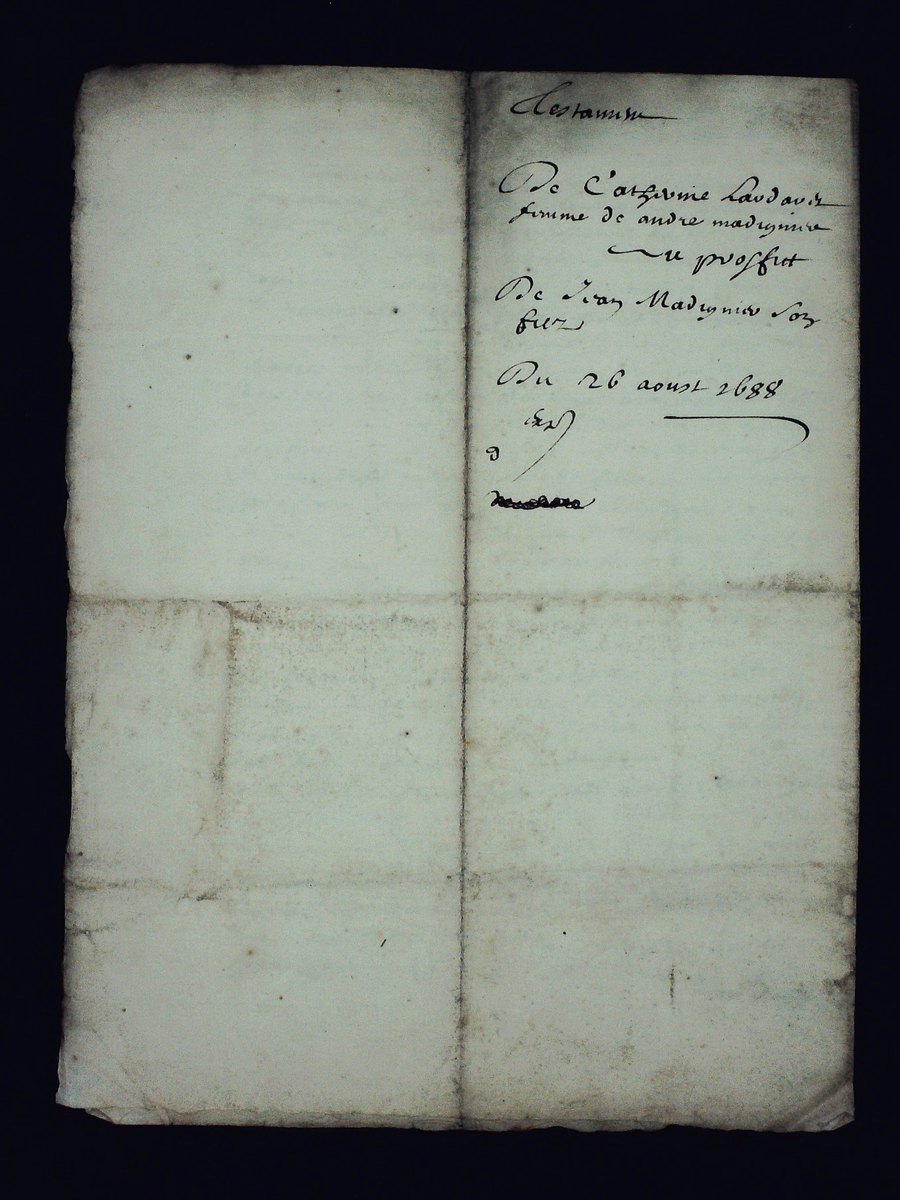 Testamen
De Catherine Lardaret
femme de andre madignier
au proffict
De Jean Madignier son
filz
Du 26 aoust 1688
d